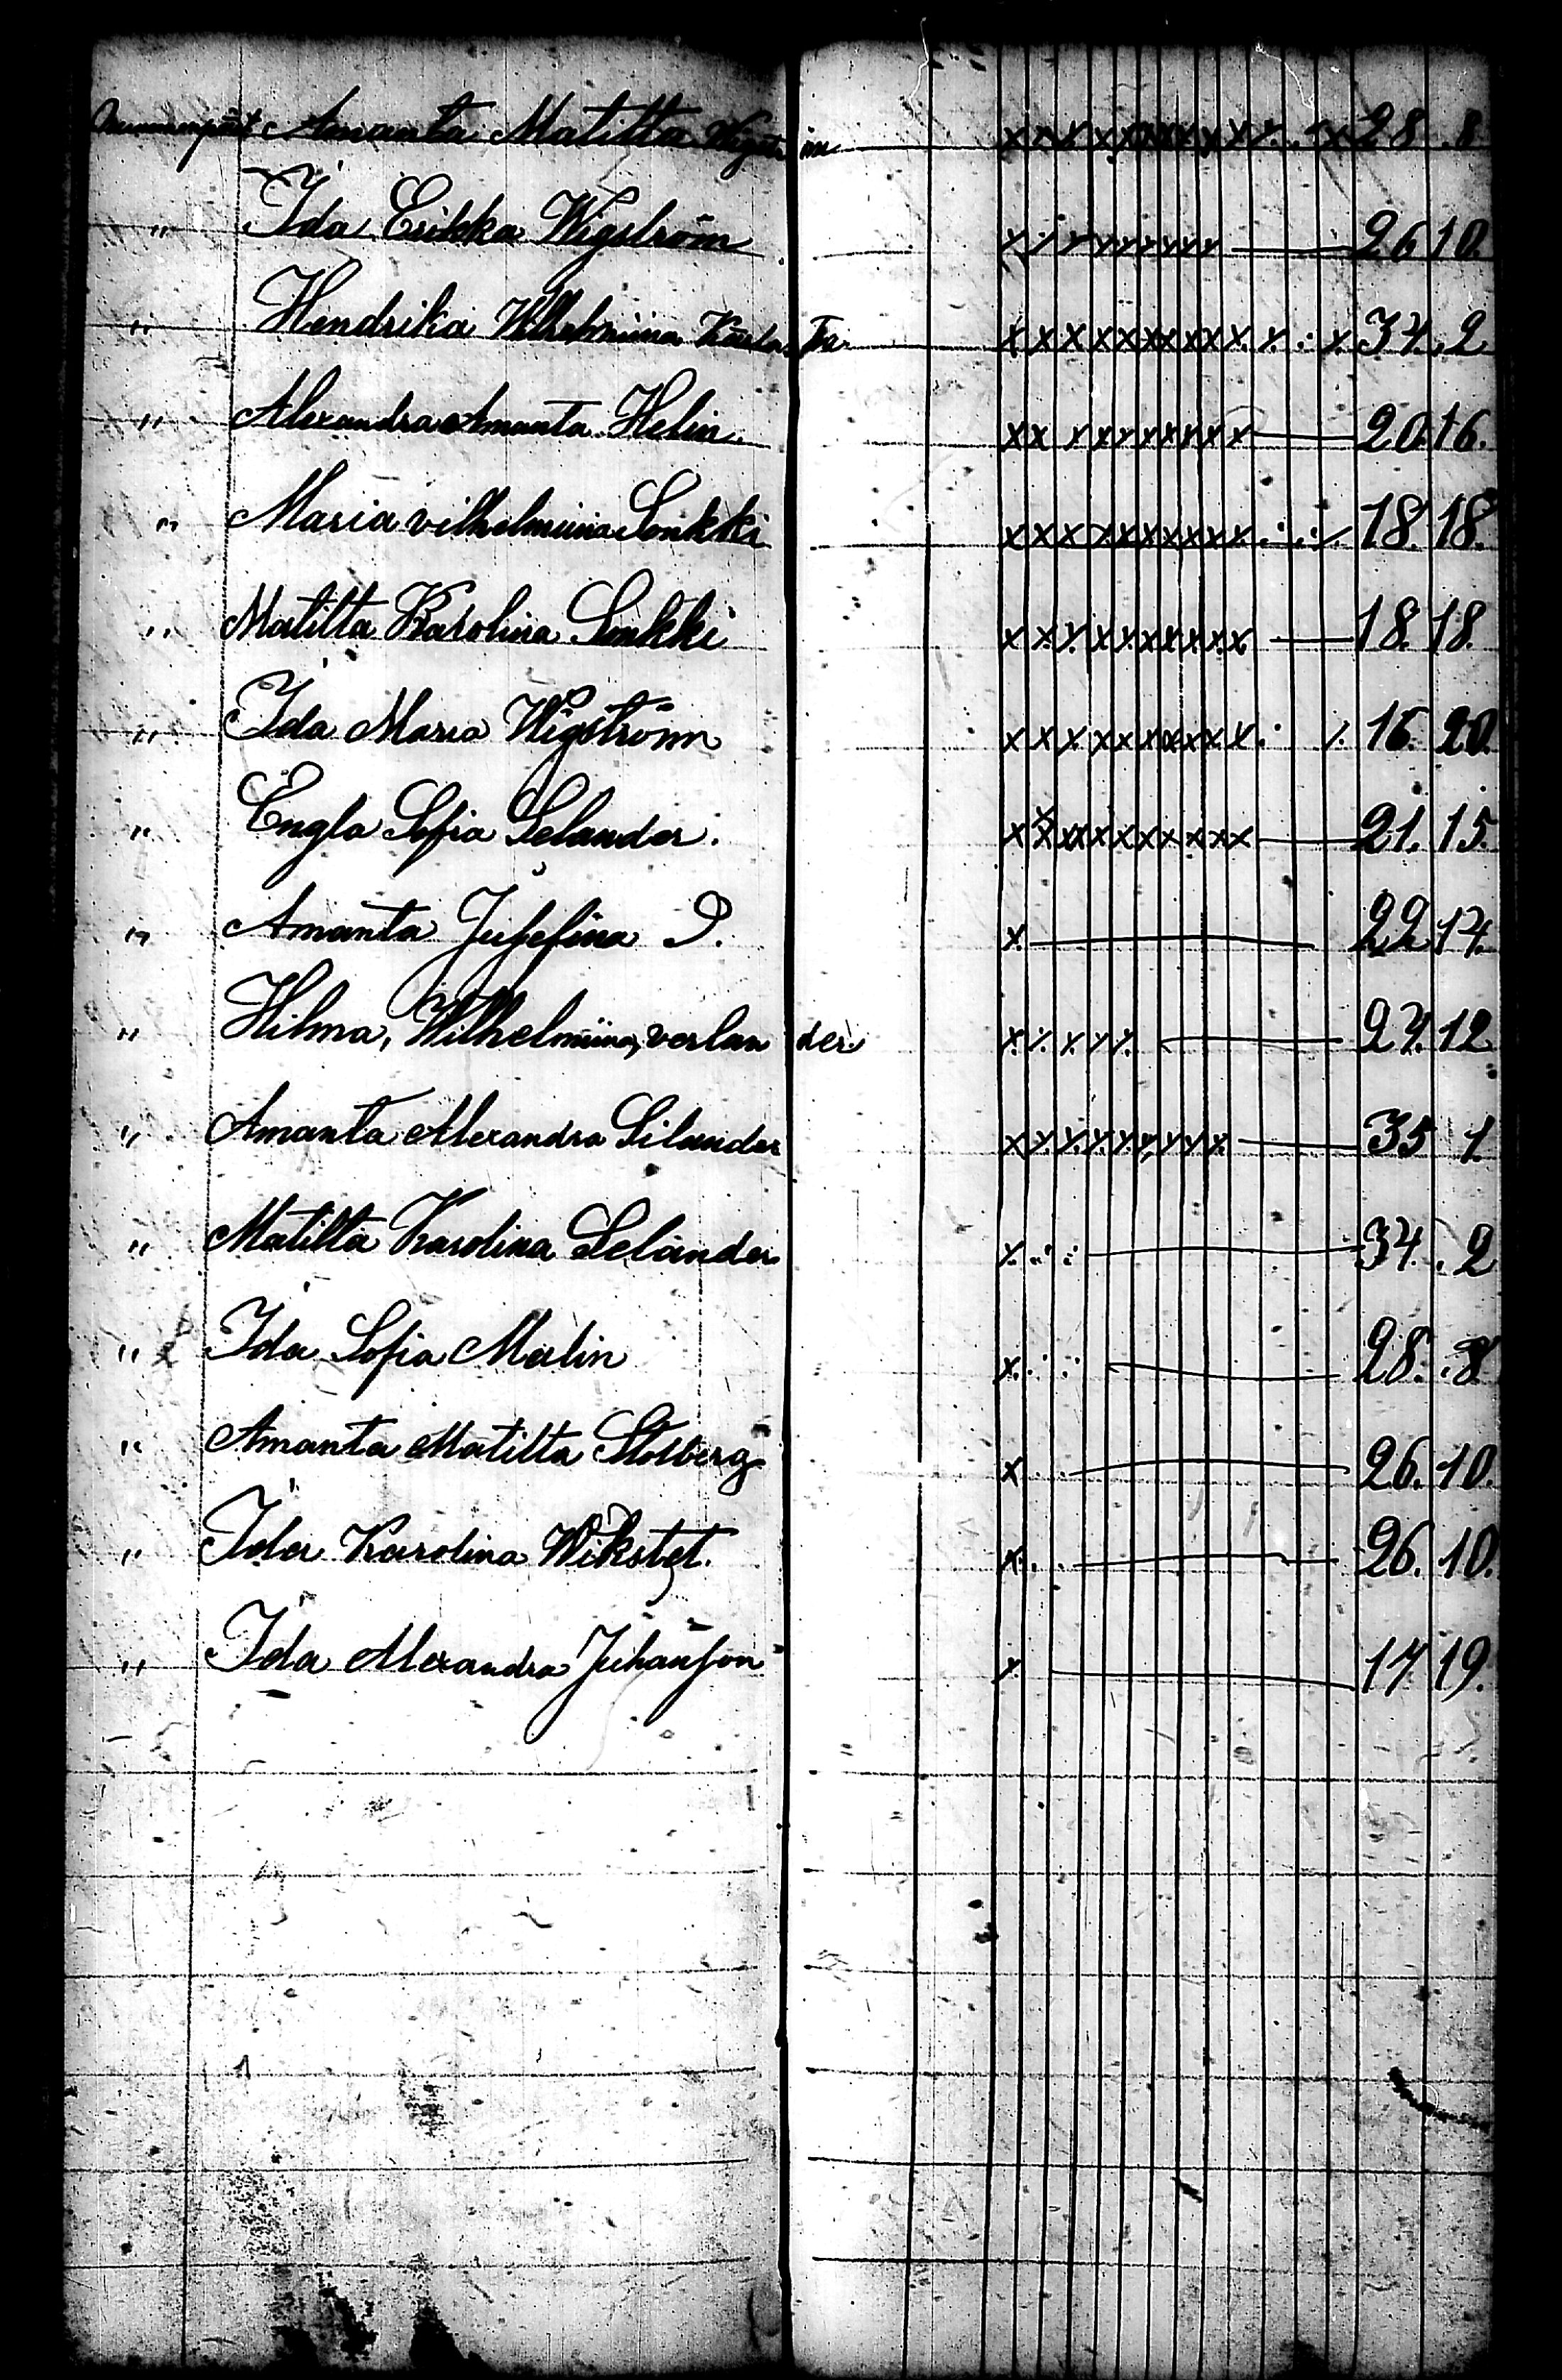 Nummenpäät Amanta Matilta xxxxxxxxxxxx..x 28. 8
" Ida Erikka Wigström xxxxxxxxx — 26 10.
" Hendrika Wilhelmiina xxxxxxxxxxx.:x. 34. 2
" Alexandra Amanta Helin. xxxxxxxxxx — 20. 16.
" Maria vilhelmiina Sonkki xxxxxxxxxx.:.:x. 18. 18.
" Matilta Karolina Sonkki xxxxxxxxxx — 18. 18.
" Ida Maria Wigström xxxxxxxxxx: x. 16. 20.
" Engla Sofia Selander. xxxxxxxxxx — 21. 15.
" Amanta Jusefina P. x — 22 14.
" Hilma, Wilhelmiina, verlan der. x.x.x.x.x. — 24. 12
" Amanta Alexandra Silander xxxxxxxxx — 35 1
" Matilta Karolina Selander x.:: — 34. 2
" Ida Sofia Malin x.:: — 28. 8
" Amanta Matilta x.. — 26. 10.
" Ida Karolina Wikstet. x.. — 26. 10.
" Ida Alexandra Juhansson x — 17 19.